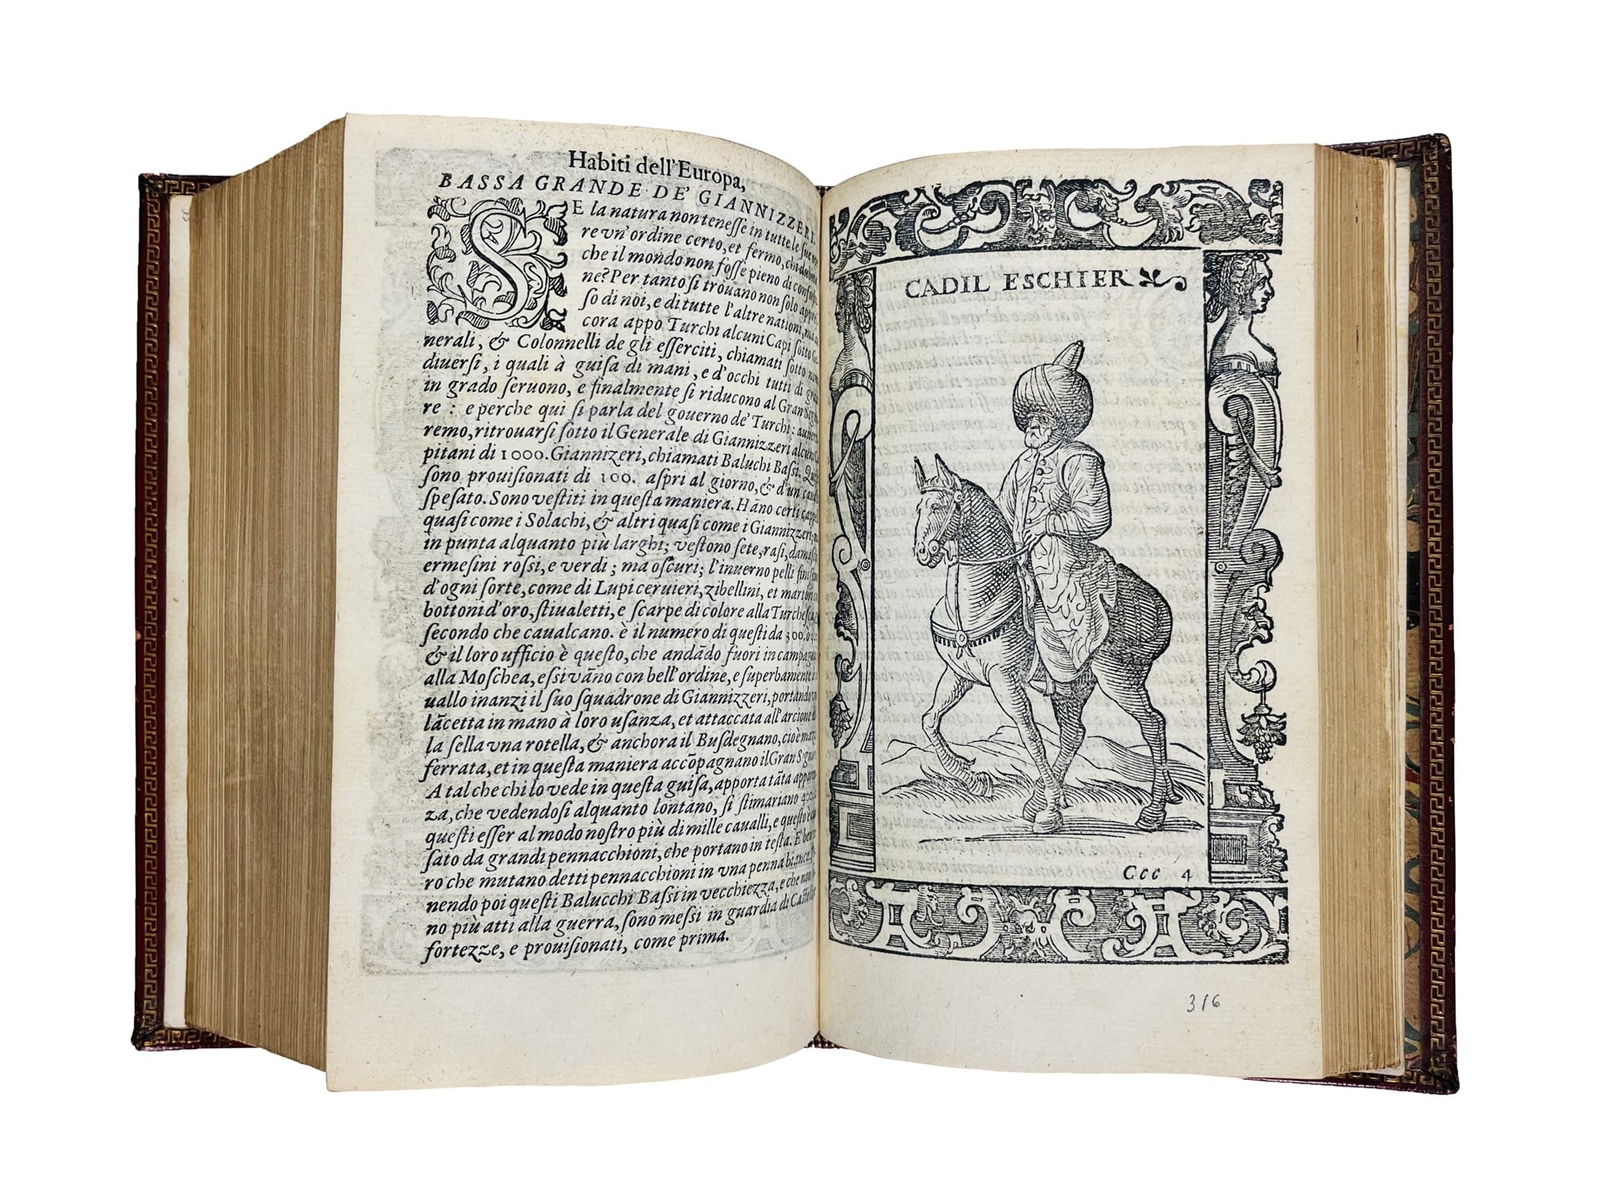 Habiti dell'Europa,
BASSA GRANDE DE' GIANNIZZERI.
SE la natura non tenesse in tutte le sue
re vn' ordine certo, et fermo, chi
che il mondo non fosse pieno di
ne? Per tanto si trouano non solo
so di noi, e di tutte l'altre nationi,
cora appo Turchi alcuni Capi sotto
nerali, & Colonnelli de gli esserciti, chiamati sotto
diuersi, i quali à guisa di mani, e d'occhi tutti di
in grado seruono, e finalmente si riducono al Gran
re: e perche qui si parla del gouerno de' Turchi:
remo, ritrouarsi sotto il Generale di Giannizzeri alcuni
pitani di 1000. Giannizeri, chiamati Baluchi Bassi.
sono prouisionati di 100. aspri al giorno, & d'un
spesato. Sono vestiti in questa maniera. Hāno certi
quasi come i Solachi, & altri quasi come i Giannizzeri,
in punta alquanto più larghi; vestono sete, rasi,
ermesini rossi, e verdi; ma oscuri; l'inuerno pelli
d'ogni sorte, come di Lupi ceruieri, zibellini, et
bottoni d'oro, stiualetti, e scarpe di colore alla
secondo che caualcano. è il numero di questi da 300.
& il loro ufficio è questo, che andādo fuori in campagna
alla Moschea, essi vāno con bell'ordine, e superbamente
uallo inanzi il suo squadrone di Giannizzeri,
lācetta in mano à loro usanza, et attaccata all'arcione
la sella vna rotella, & anchora il Busdegnano, cioè
ferrata, et in questa maniera accōpagnano il Gran
A tal che chi lo vede in questa guisa, apporta tāta
za, che vedendosi alquanto lontano, si stimariano
questi esser al modo nostro più di mille caualli, e questo è
sato da grandi pennacchioni, che portano in testa. E'
ro che mutano detti pennacchioni in vna penna
nendo poi questi Balucchi Bassi in vecchiezza, e che
no più atti alla guerra, sono messi in guardia di
fortezze, e prouisionati, come prima.
CADIL ESCHIER
Ccc 4
316